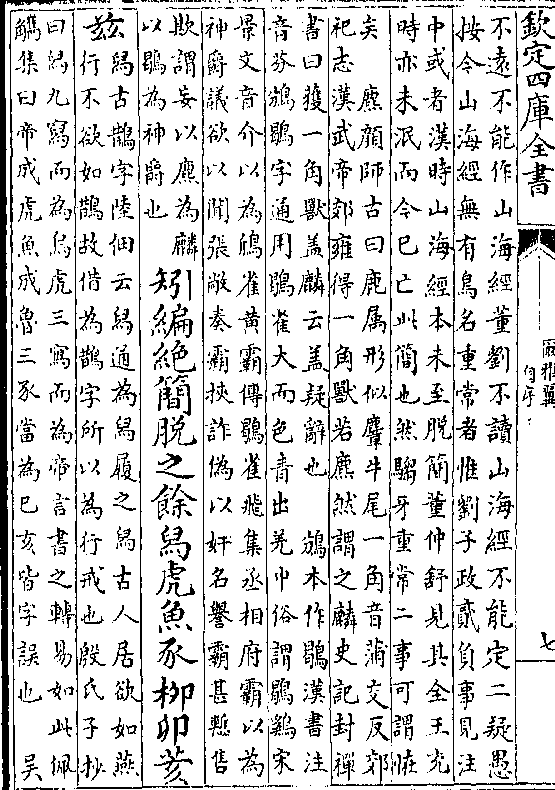 欽定四庫全書
爾雅翼
自序
七
不遠不能作山海經董劉不讀山海經不能定二疑愚
按今山海經無有鳥名重常者惟劉子政貳負事見注
中或者漢時山海經本未至脱簡董仲舒見其全王充
時亦未泯而今已亡此簡也然騶牙重常二事可謂恠
矣 麃顔師古曰鹿屬形似麞牛尾一角音蒲交反郊
祀志漢武帝郊雍得一角獸若麃然謂之麟史記封禪
書曰獲一角獸盖麟云盖疑辭也 鳻本作鶡漢書注
音芬鳻鶡字通用鶡雀大而色青出羌中俗謂鶡鷄宋
景文音介以為鳻雀黄霸傳鶡雀飛集丞相府霸以為
神爵議欲以聞張敞奏霸挾詐偽以奸名譽霸甚慙售
欺謂妄以麃為麟
以鶡為神爵也
矧編絶簡脱之餘舄虎魚豕柳卯荄
兹
舄古鵲字陸佃云舄通為舄履之舄古人居欲如燕
行不欲如鵲故借為鵲字所以為行戒也殷氏子抄
曰舄九寫而為烏虎三寫而為帝言書之轉易如此佩
觿集曰帝成虎魚成魯三豕當為已亥皆字誤也 吳